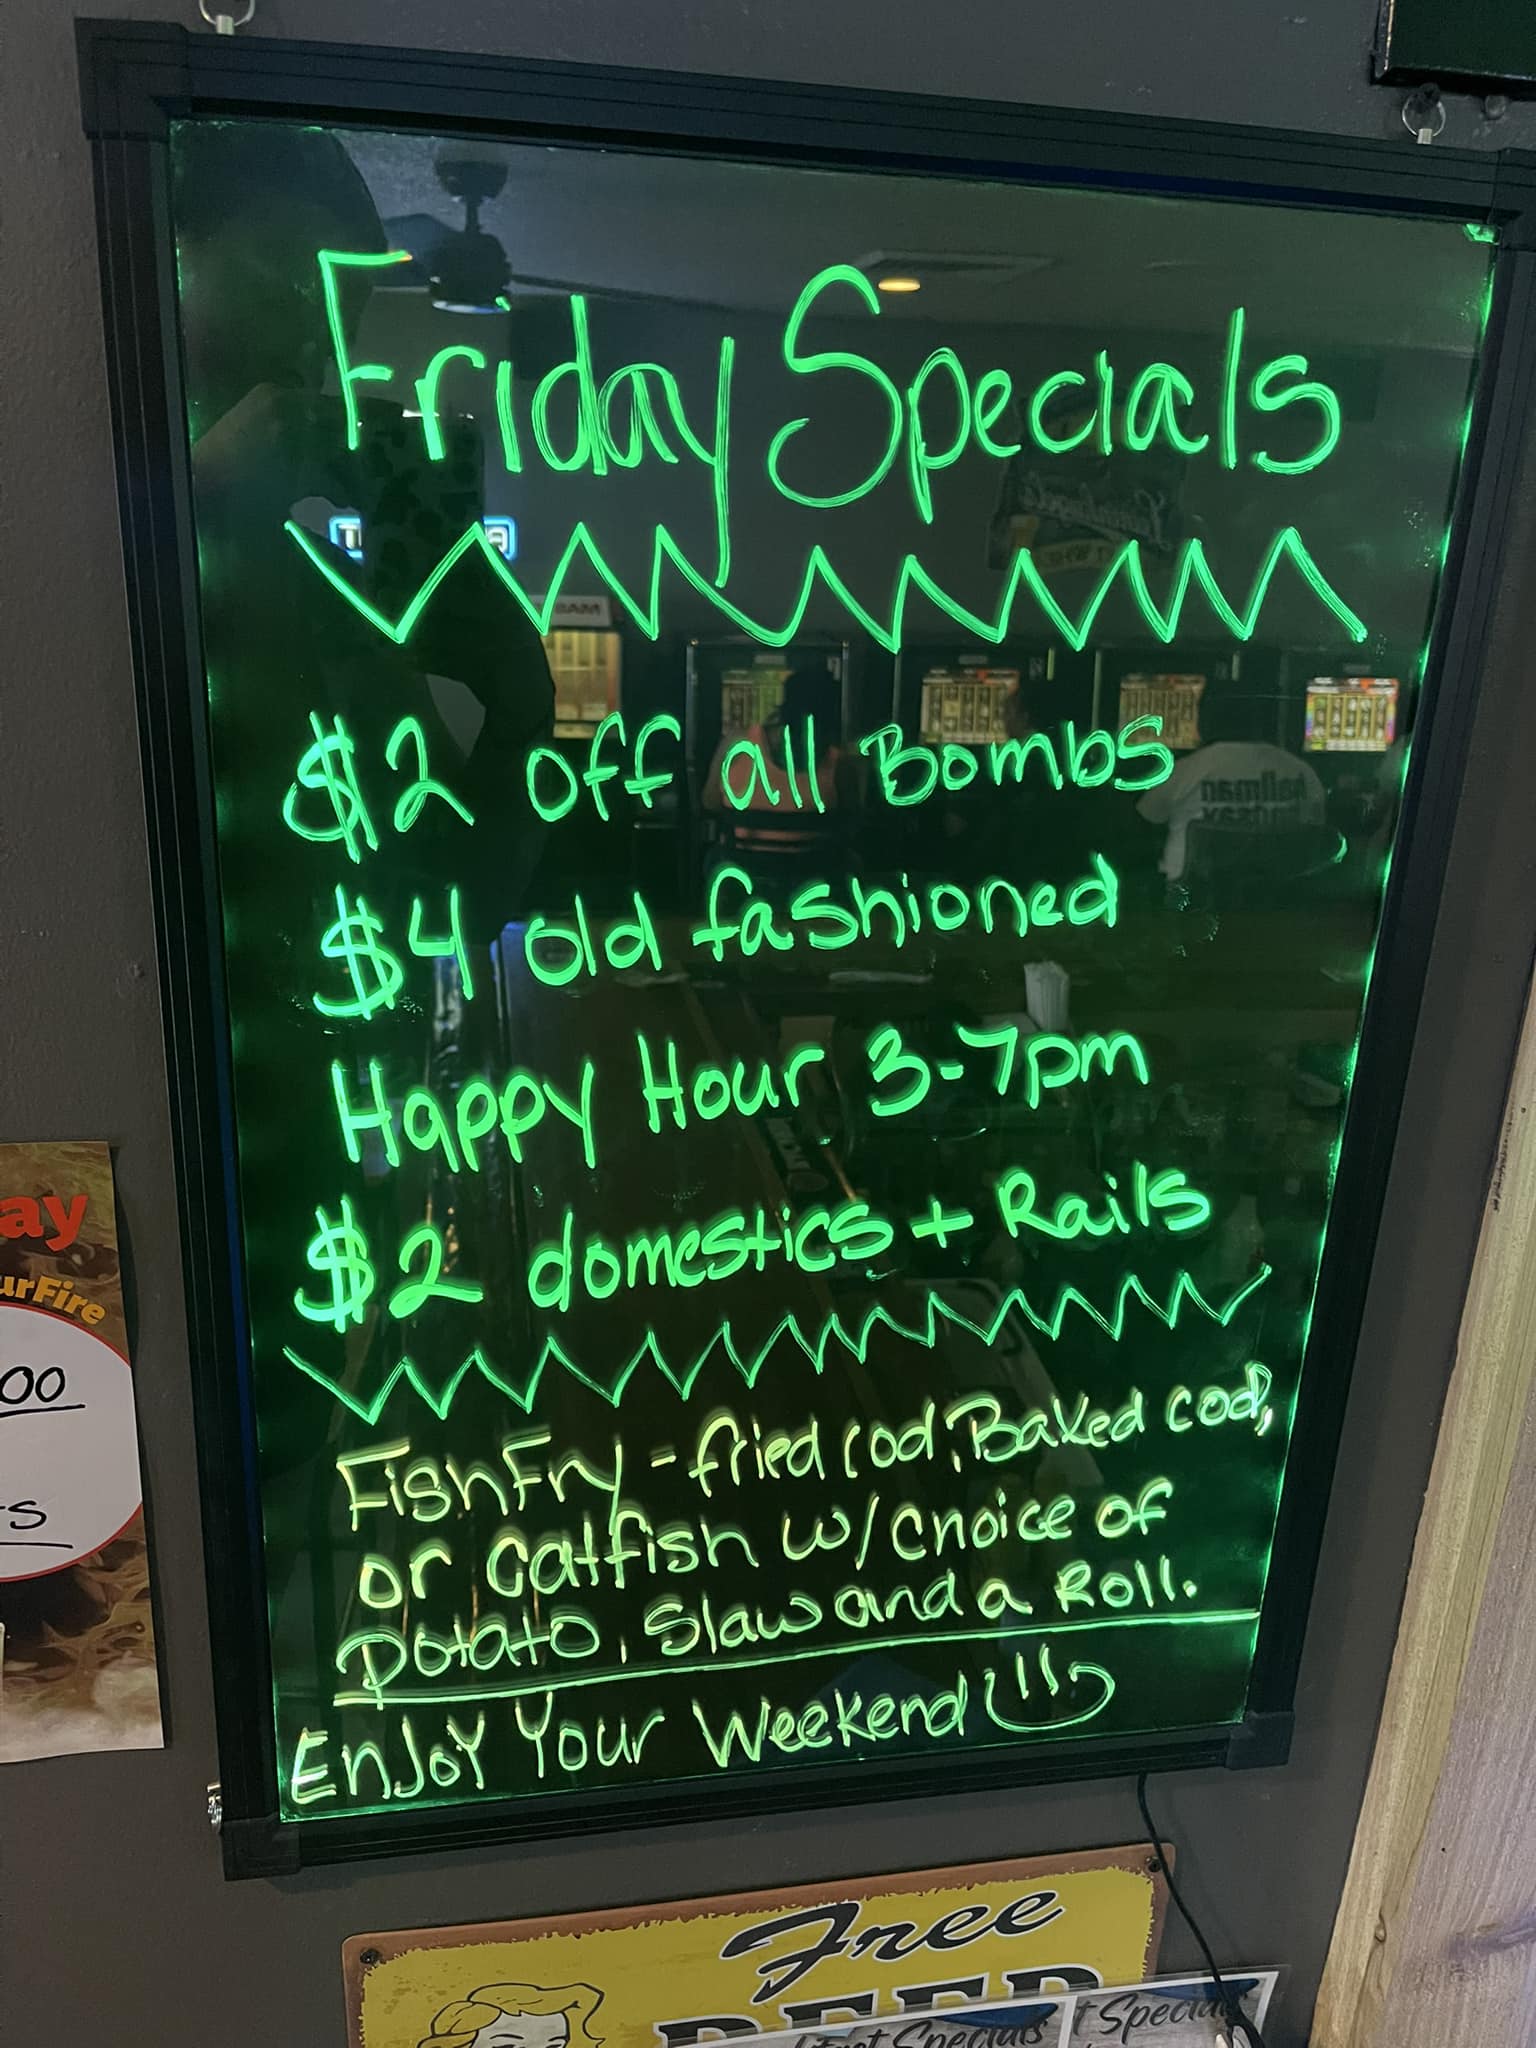 Friday Specials
$2 off all Bombs
$4 old fashioned
Happy Hour 3-7pm
$2 domestics + Rails
Fish Fry - fried cod, Baked cod,
or catfish w/ choice of
Potato, Slaw and a Roll.
Enjoy Your Weekend
ay
urFire
00
TS
Free
BEER
Specials
t Specials